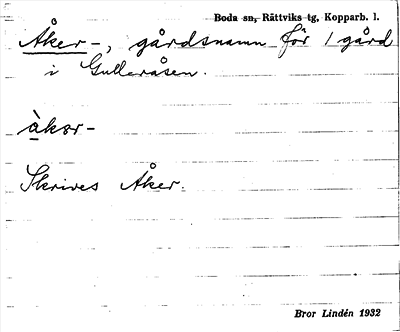 Boda sn, Rättviks tg, Kopparb. l.
Åker-, gårdsnamn för 1 gård
i Gulleråsen.
àkər-
Skrives Åker.
Bror Lindén 1932